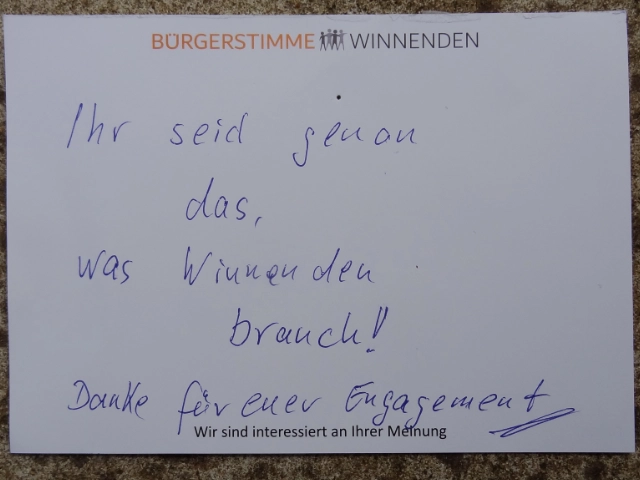 BÜRGERSTIMME WINNENDEN
Ihr seid genau
das,
was Winnenden
brauch!
Danke für euer Engagement
Wir sind interessiert an Ihrer Meinung